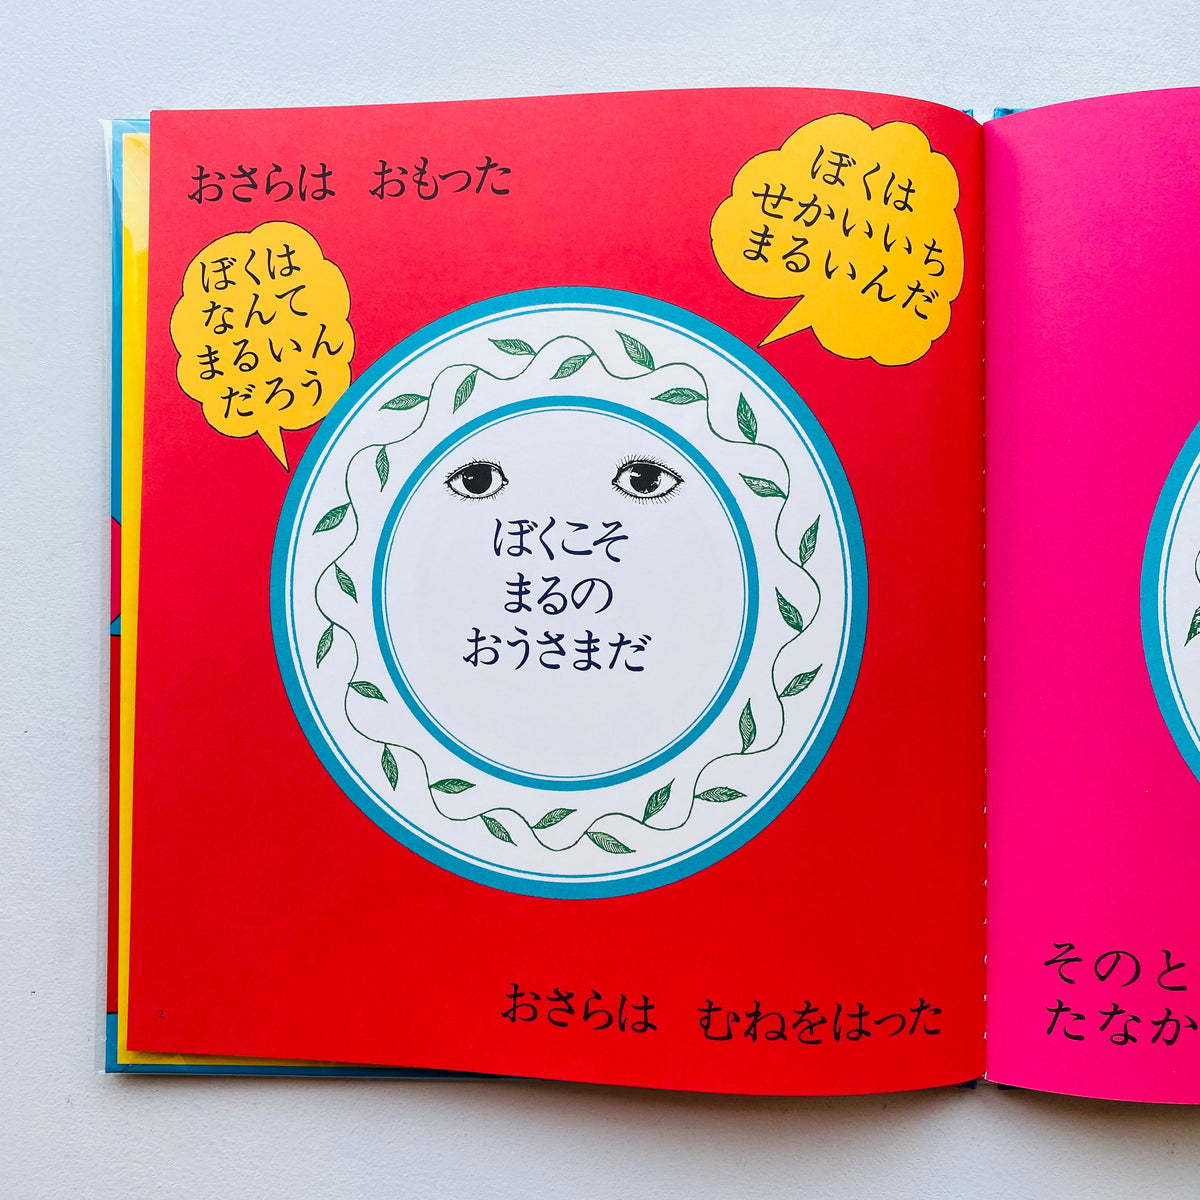 おさらは　おもった
ぼくは
なんて
まるいん
だろう
ぼくは
せかいいち
まるいんだ
ぼくこそ
まるの
おうさまだ
おさらは　むねをはった
2
そのと
たなか